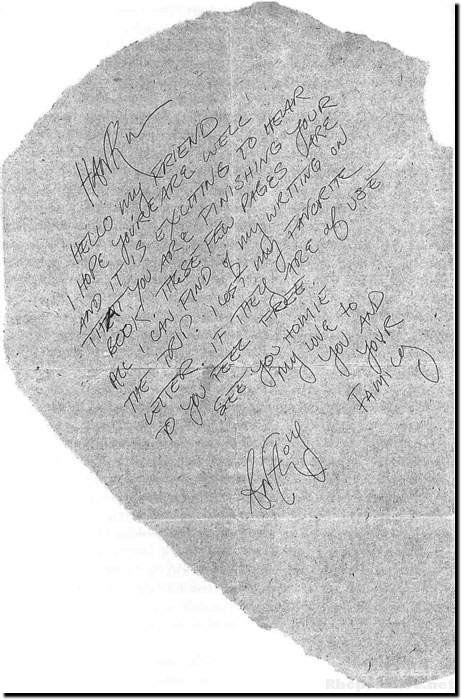 HELLO MY FRIEND!
I HOPE YOURE ARE WELL
AND IT IS EXCITING TO HEAR
THAT YOU ARE FINISHING YOUR
BOOK. THESE FEW PAGES ARE
ALL I CAN FIND OF MY WRITING ON
THE TRIP. I LOST MY FAVORITE
LETTER. IF THEY ARE OF USE
TO YOU FEEL FREE.
SEE YOU HOMIE
MY LOVE TO
YOU AND
YOUR
FAMILY